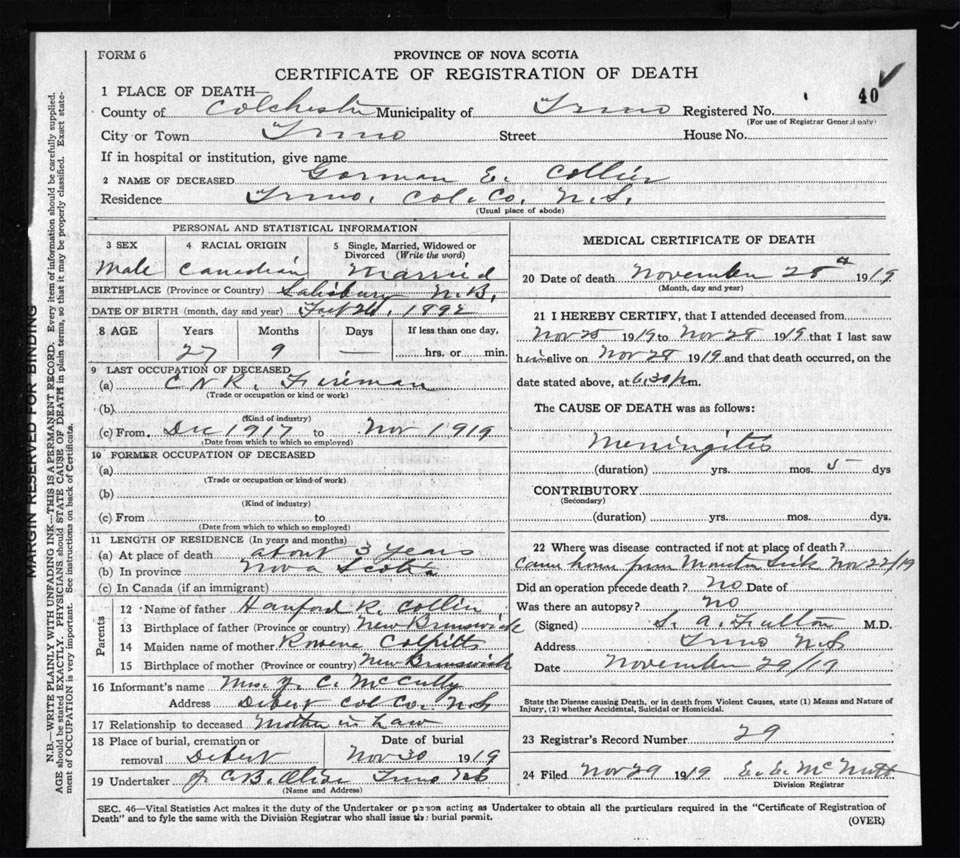 FORM 6
PROVINCE OF NOVA SCOTIA
CERTIFICATE OF REGISTRATION OF DEATH
40
1 PLACE OF DEATH—
County of Colchester Municipality of Truro Registered No.
(For use of Registrar General only)
City or Town Truro Street House No.
If in hospital or institution, give name
2 NAME OF DECEASED Gorman E. Collier
Residence Truro, Col. Co. N.S.
(Usual place of abode)
PERSONAL AND STATISTICAL INFORMATION
3 SEX 4 RACIAL ORIGIN 5 Single, Married, Widowed or
Divorced (Write the word)
Male Canadian Married
BIRTHPLACE (Province or Country) Salisbury N.B.
DATE OF BIRTH (month, day and year) 1892
8 AGE Years Months Days If less than one day,
27 9 — hrs. or min.
9 LAST OCCUPATION OF DECEASED
(a) C N R. Fireman
(Trade or occupation or kind or work)
(b)
(Kind of industry)
(c) From Dec 1917 to Nov 1919
(Date from which to which so employed)
10 FORMER OCCUPATION OF DECEASED
(a)
(Trade or occupation or kind of work)
(b)
(Kind of industry)
(c) From to
(Date from which to which so employed)
11 LENGTH OF RESIDENCE (In years and months)
(a) At place of death about 3 years
(b) In province Nova Scotia
(c) In Canada (if an immigrant)
Parents
12 Name of father Hanford R. Collier
13 Birthplace of father (Province or country) New Brunswick
14 Maiden name of mother Rowena Colpitts
15 Birthplace of mother (Province or country) New Brunswick
16 Informant's name Mrs. J. C. McCully
Address Debert Col Co. N.S
17 Relationship to deceased Mother in Law
18 Place of burial, cremation or removal Debert Date of burial Nov 30 1919
19 Undertaker J. C. B. Truro
(Name and Address)
MEDICAL CERTIFICATE OF DEATH
20 Date of death November 28th 1919
(Month, day and year)
21 I HEREBY CERTIFY, that I attended deceased from
Nov 25 1919 to Nov 28 1919 that I last saw
him alive on Nov 28 1919 and that death occurred, on the
date stated above, at 6.30 p.m.
The CAUSE OF DEATH was as follows:
Meningitis
(duration) yrs. mos. 5 dys
CONTRIBUTORY
(Secondary)
(duration) yrs. mos. dys.
22 Where was disease contracted if not at place of death?
Came home from Moncton Sick Nov 22/19
Did an operation precede death? No Date of
Was there an autopsy? No
(Signed) S. A. Fulton M.D.
Address Truro N.S
Date November 29/19
State the Disease causing Death, or in death from Violent Causes, state (1) Means and Nature of
Injury, (2) whether Accidental, Suicidal or Homicidal.
23 Registrar's Record Number 29
24 Filed Nov 29 1919 E. E. McNutt
Division Registrar
SEC. 46—Vital Statistics Act makes it the duty of the Undertaker or person acting as Undertaker to obtain all the particulars required in the "Certificate of Registration of
Death" and to fyle the same with the Division Registrar who shall issue the burial permit.
(OVER)
MARGIN RESERVED FOR BINDING
N.B.—WRITE PLAINLY WITH UNFADING INK—THIS IS A PERMANENT RECORD. Every item of information should be carefully supplied.
AGE should be stated EXACTLY. PHYSICIANS should STATE CAUSE OF DEATH in plain terms, so that it may be properly classified. Exact state-
ment of OCCUPATION is very important. See instructions on back of Certificate.